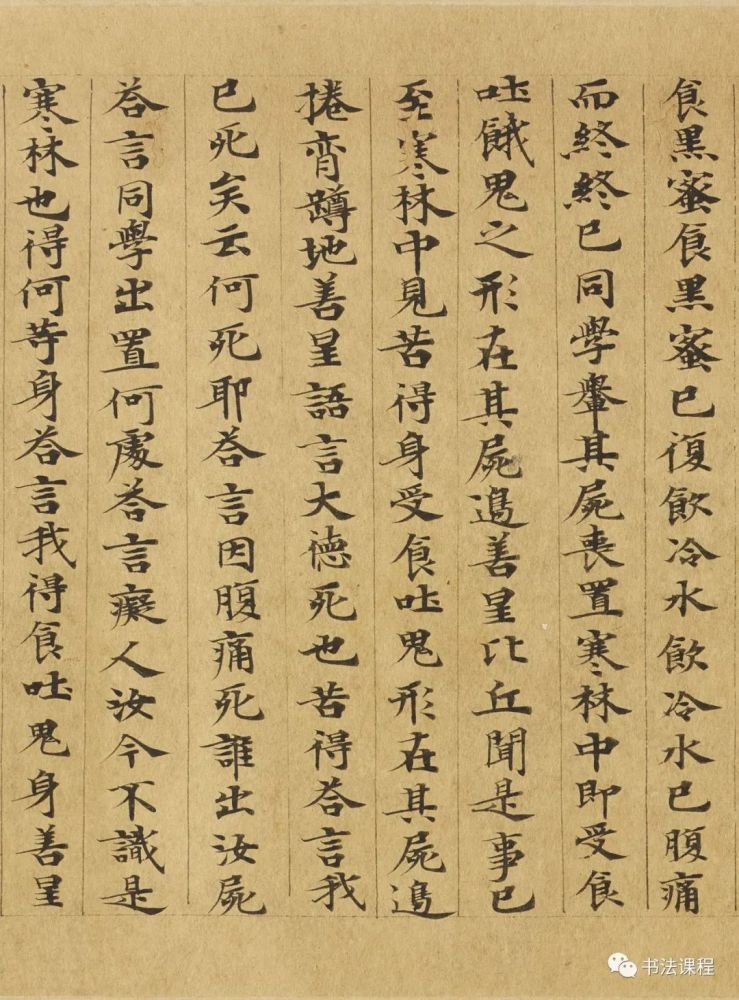 食黑蜜食黑蜜已復飲冷水飲冷水已腹痛
而終終已同學轝其屍喪置寒林中即受食
吐餓鬼之形在其屍邊善星比丘聞是事已
至寒林中見苦得身受食吐鬼形在其屍邊
捲脊蹲地善星語言大德死也苦得荅言我
已死矣云何死耶荅言因腹痛死誰出汝屍
荅言同學出置何處荅言癡人汝今不識是
寒林也得何等身荅言我得食吐鬼身善星
书法课程